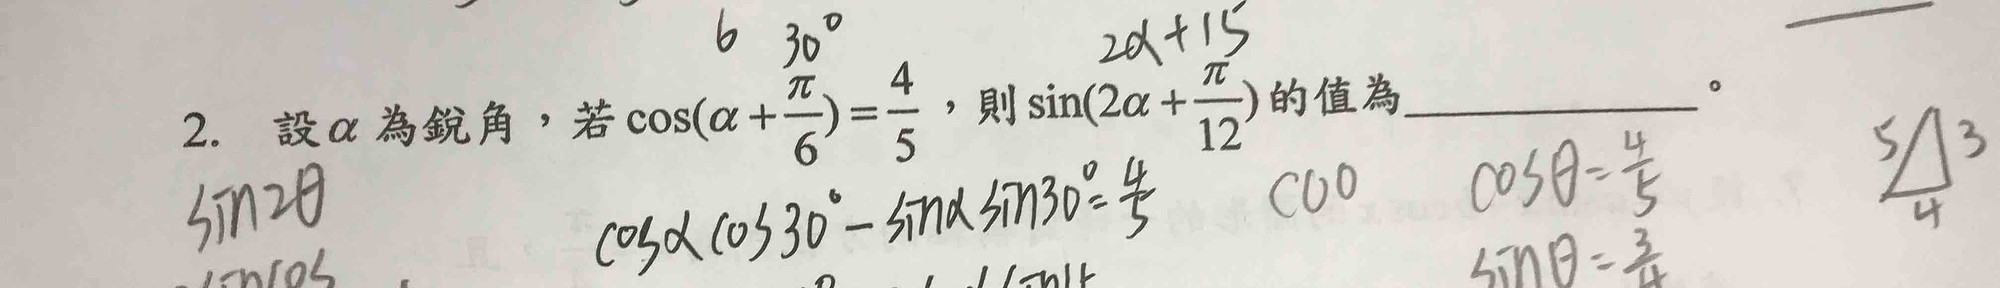 6 30° 2α+15
2. 設α為銳角，若cos(α+π/6)=4/5，則sin(2α+π/12)的值為__________。
sin2θ cosαcos30°-sinαsin30°=4/5 COO cosθ=4/5 5 3 4
sinθ=3/4